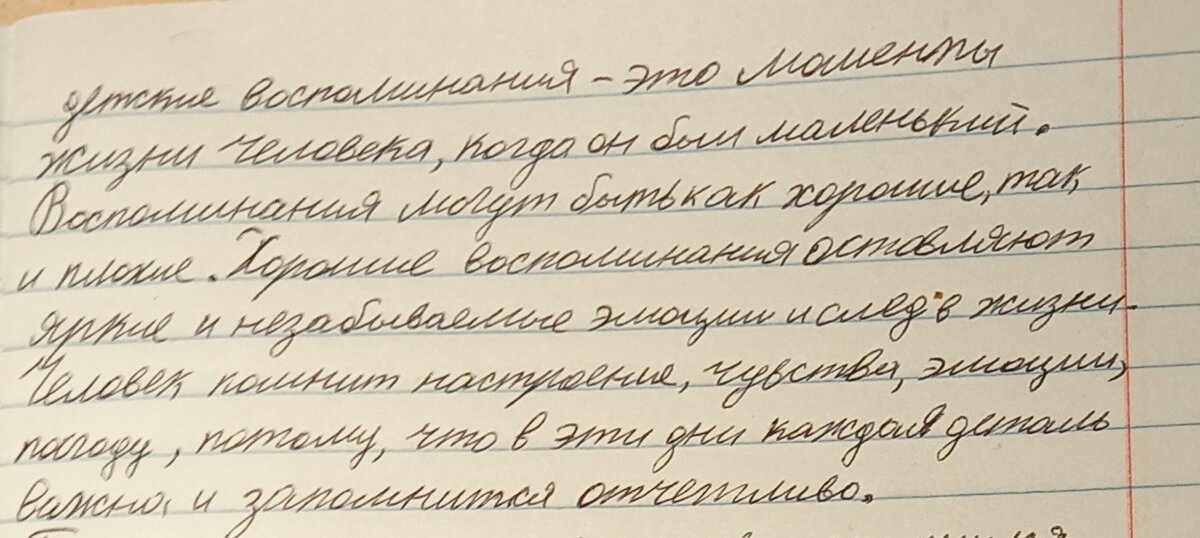 детские воспоминания – это моменты
жизни человека, когда он был маленький.
Воспоминания могут быть как хорошие, так
и плохие. Хорошие воспоминания оставляют
яркие и незабываемые эмоции и след в жизни.
Человек помнит настроение, чувства, эмоции,
погоду, потому, что в эти дни каждая деталь
важна, и запомнится отчетливо.